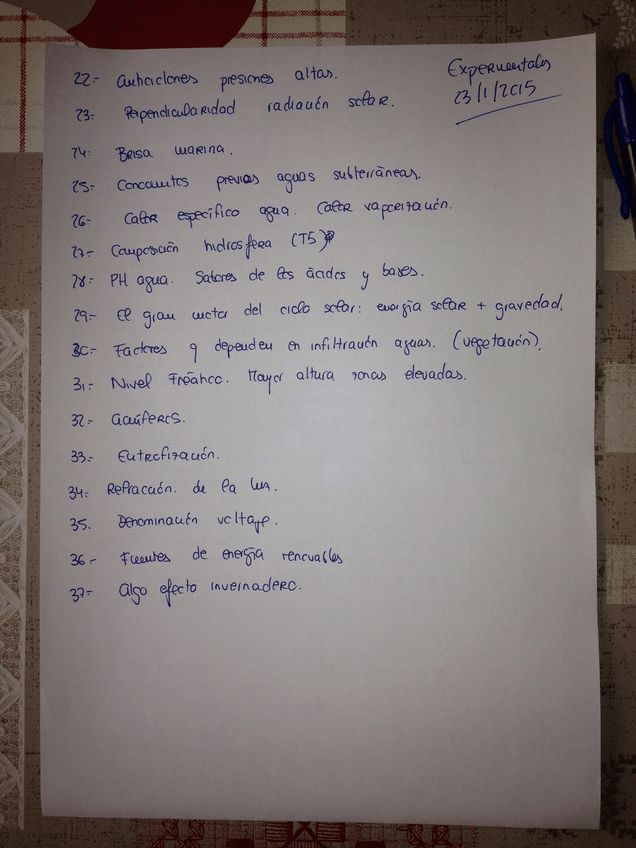 Experimentales
23/1/2015
22- Anticiclones presiones altas.
23- Perpendicularidad radiación solar.
24- Brisa marina.
25- Conceptos previos aguas subterráneas.
26- Calor específico agua. Calor vaporización.
27- Composición hidrosfera (T5)
28- PH agua. Sabores de los ácidos y bases.
29- El gran motor del ciclo solar: energía solar + gravedad.
30- Factores q dependen en infiltración aguas. (vegetación).
31- Nivel Freático. Mayor altura zonas elevadas.
32- Acuíferos.
33- Eutrofización.
34- Refracción. de la luz.
35. Denominación voltaje.
36- Fuentes de energía renovables
37- Algo efecto invernadero.